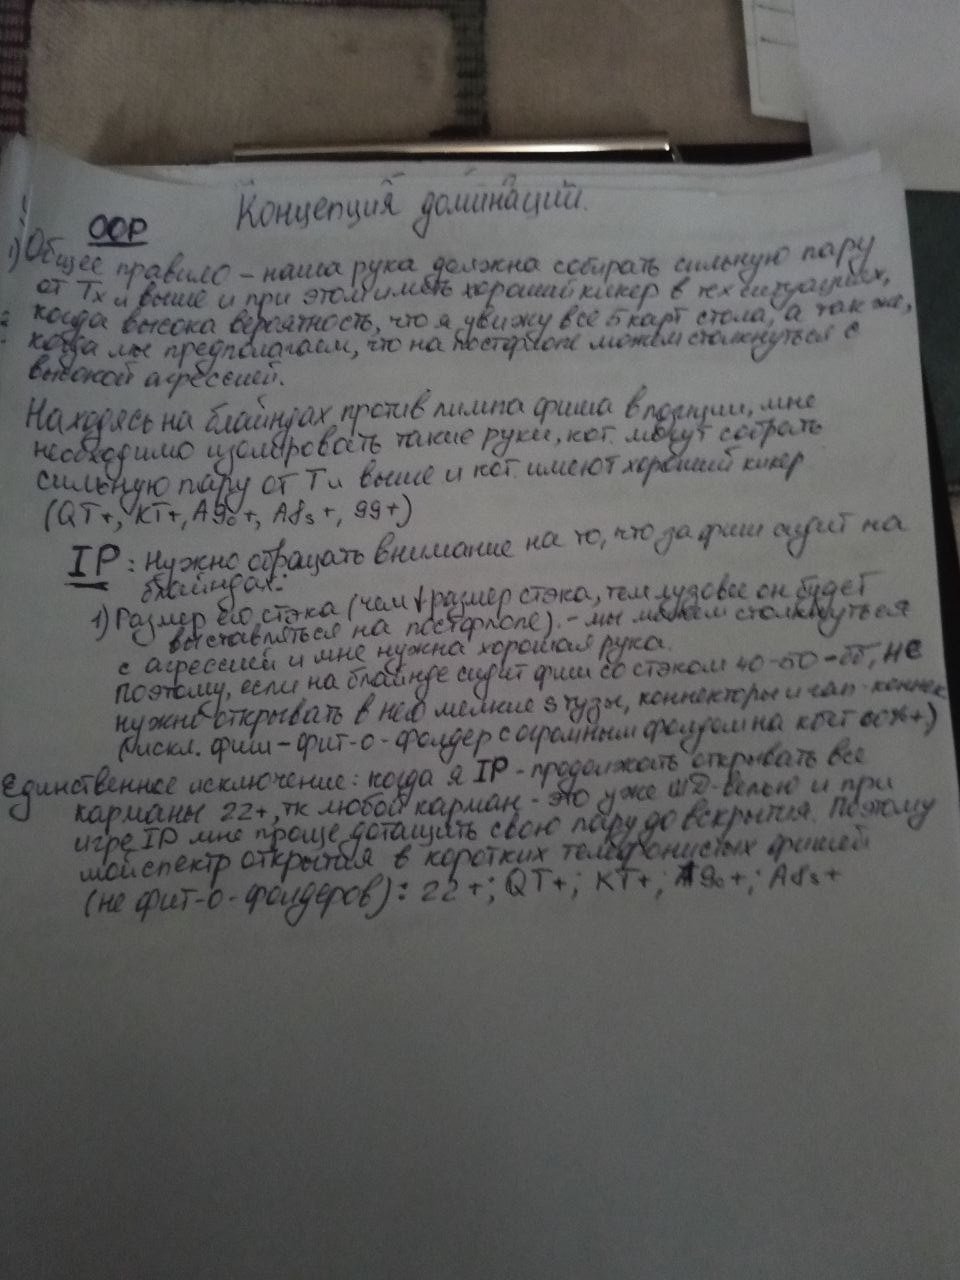 Концепция доминаций.
OOP
1) Общее правило – наша рука должна собирать сильную пару
от Тх и выше и при этом иметь хороший кикер в тех ситуациях,
когда высока вероятность, что я увижу все 5 карт стола, а так же,
когда мы предполагаем, что на постфлопе можем столкнуться с
высокой агрессией.
Находясь на блайндах против лимпа фиша в позиции, мне
необходимо изолировать такие руки, кот. могут собрать
сильную пару от Т и выше и кот. имеют хороший кикер
(QT+, KT+, A9o+, A8s+, 99+)
IP: Нужно обращать внимание на то, что за фиш сидит на
блайндах:
1) Размер его стэка (чем ↓ размер стэка, тем лузовее он будет
выставляться на постфлопе). – мы можем столкнуться
с агрессией и мне нужна хорошая рука.
Поэтому, если на блайнде сидит фиш со стэком 40-50-бб, не
нужно открывать в него мелкие s тузы, коннекторы и гап-коннек
(искл. фиш – фит-о-фолдер с огромным фолдом на кбет 60%+)
Единственное исключение: когда я IP – продолжать открывать все
карманы 22+, тк любой карман – это уже ШД-велью и при
игре IP мне проще дотащить свою пару до вскрытия. Поэтому
мой спектр открытия в коротких телефонистых фишей
(не фит-о-фолдеров): 22+; QT+; KT+; A9o+; A8s+